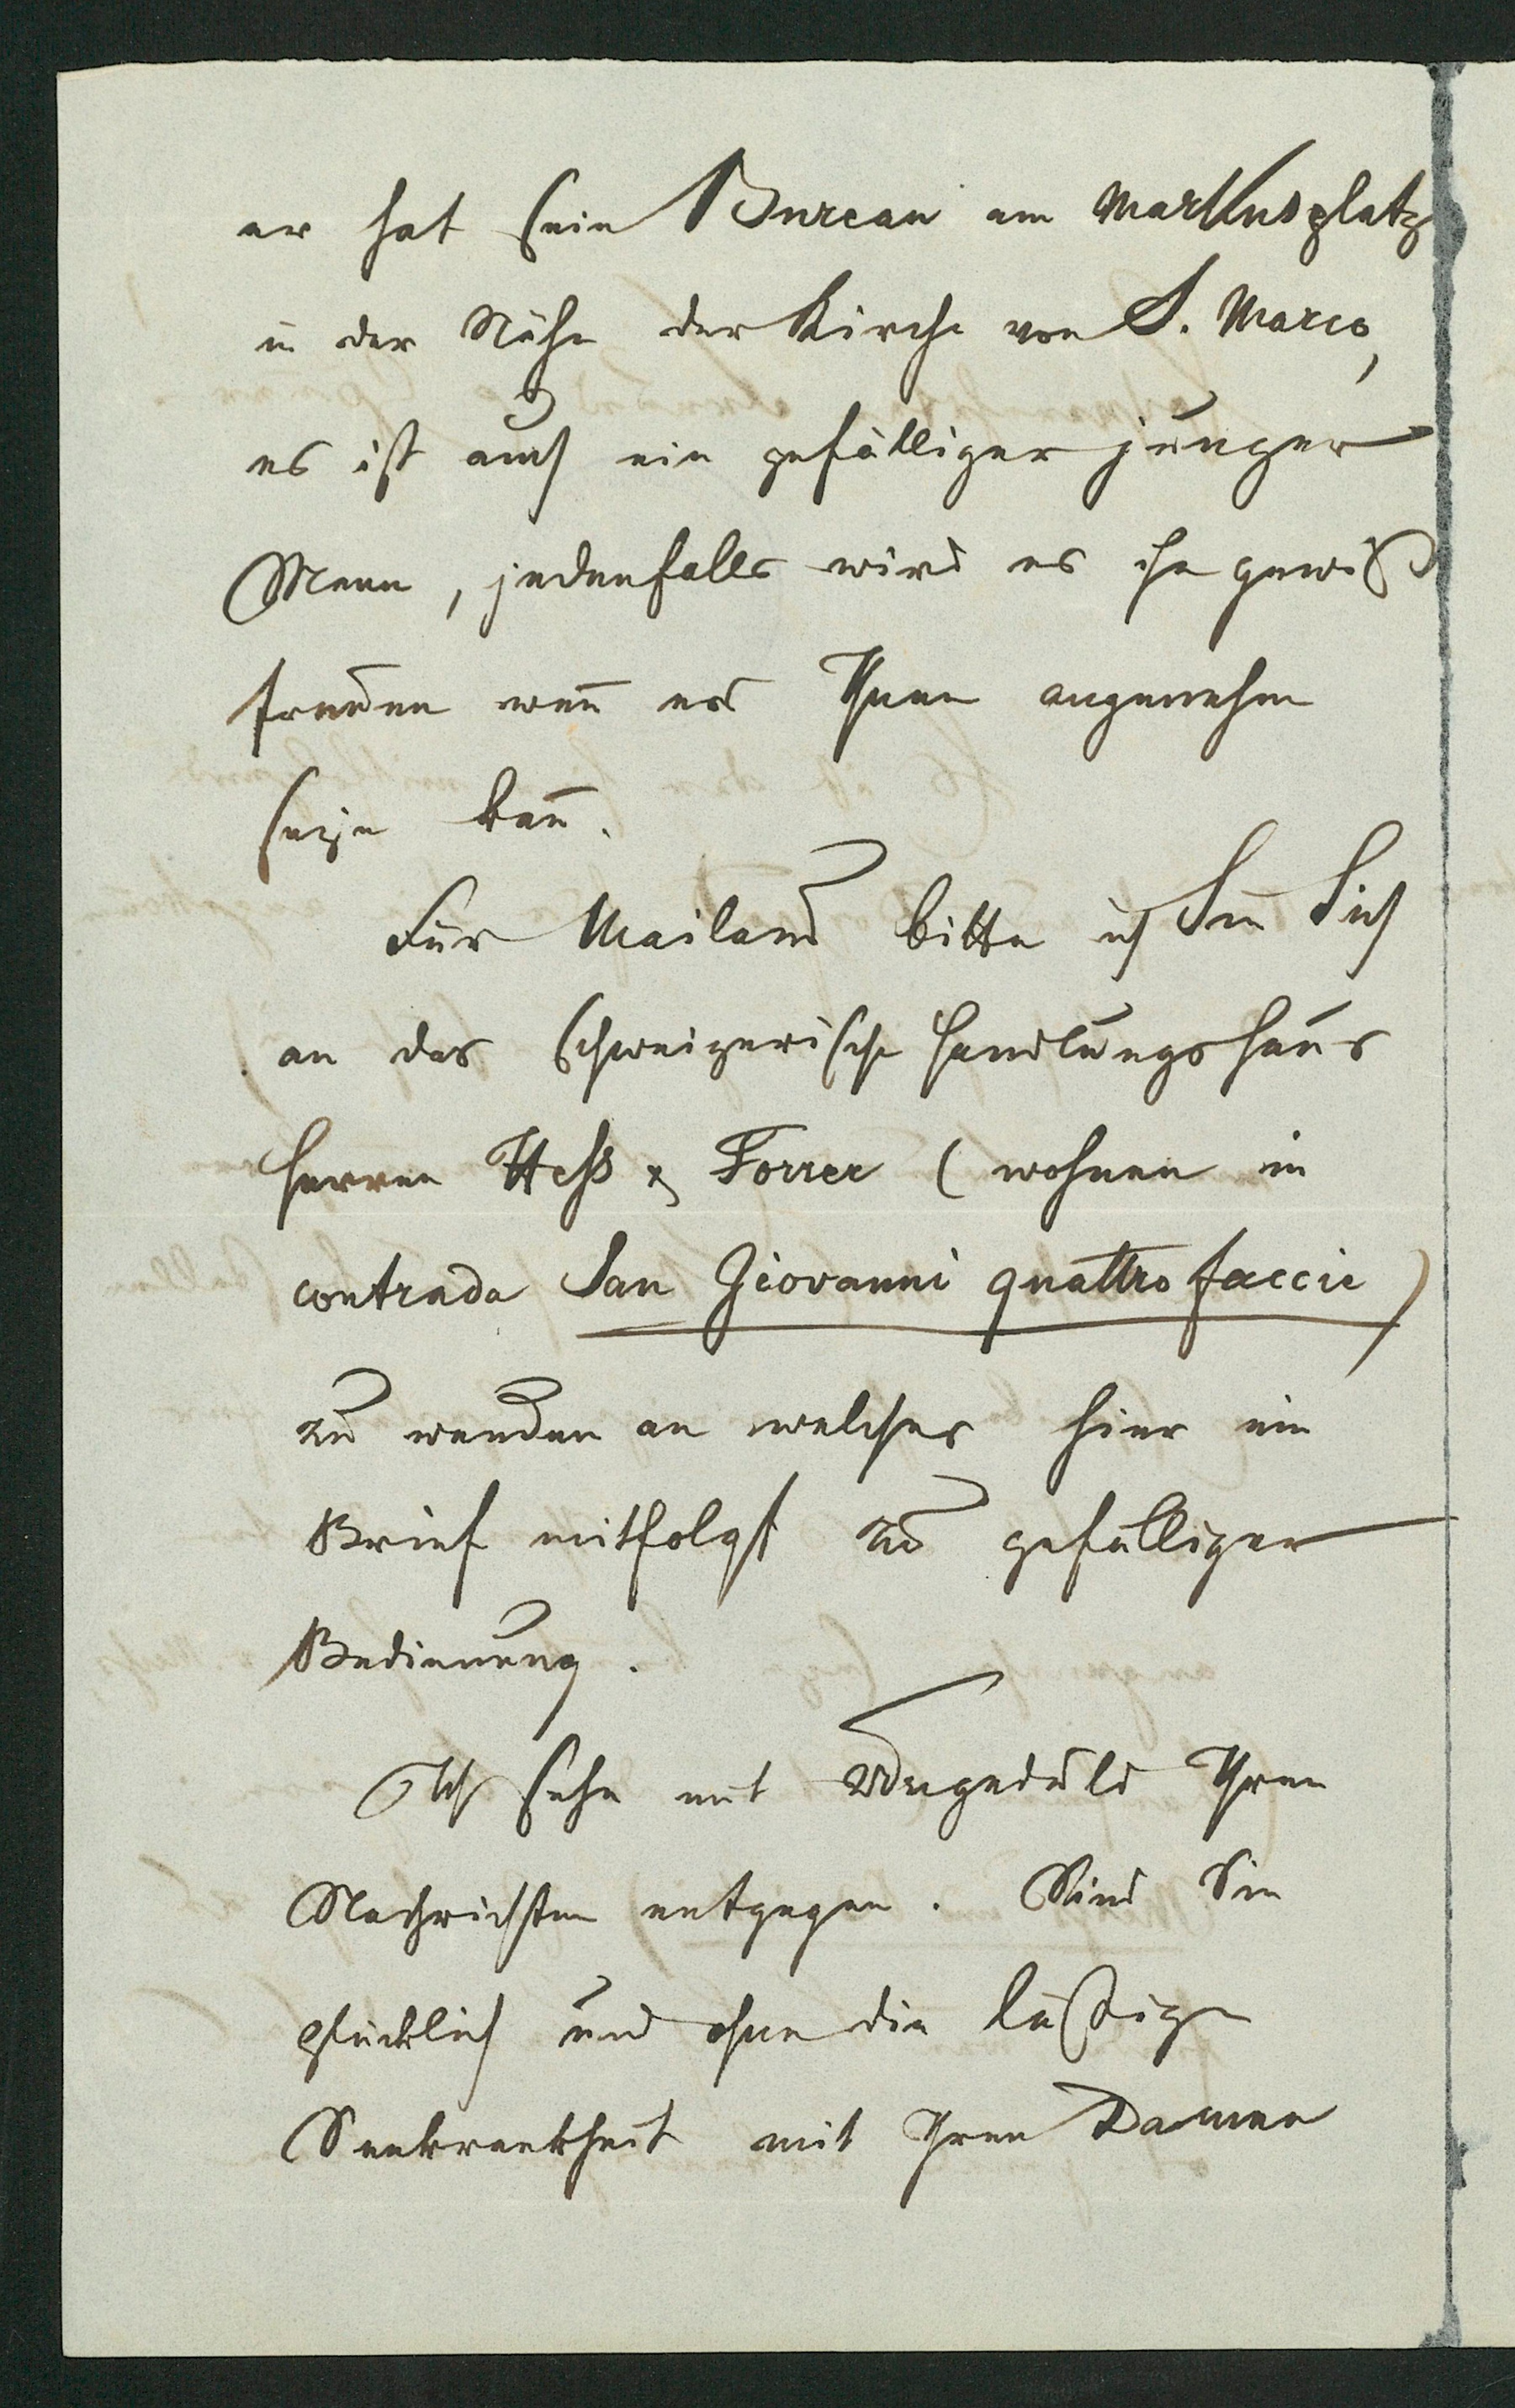 er hat sein Bureau am Markusplatz
in der Nähe der Kirche von S. Marco,
es ist auch ein gefälliger junger
Mann, jedenfalls wird es ihn gewiß
freuen wen̄ er Ihnen angenehm
seyn kan̄.
Für Mailand bitte ich Sie Sich
an das schweizerische Handlungshaus
Herren Heß & Forrer (wohnen in
contrada San Giovanni quattro faccie)
zu wenden an welches hier ein
Brief mitfolgt zu gefälliger
Bedienung.
Ich sehe mit Ungeduld Ihren
Nachrichten entgegen. Sind Sie
glücklich und ohne die läßige
Seekrankheit mit Ihren Damen